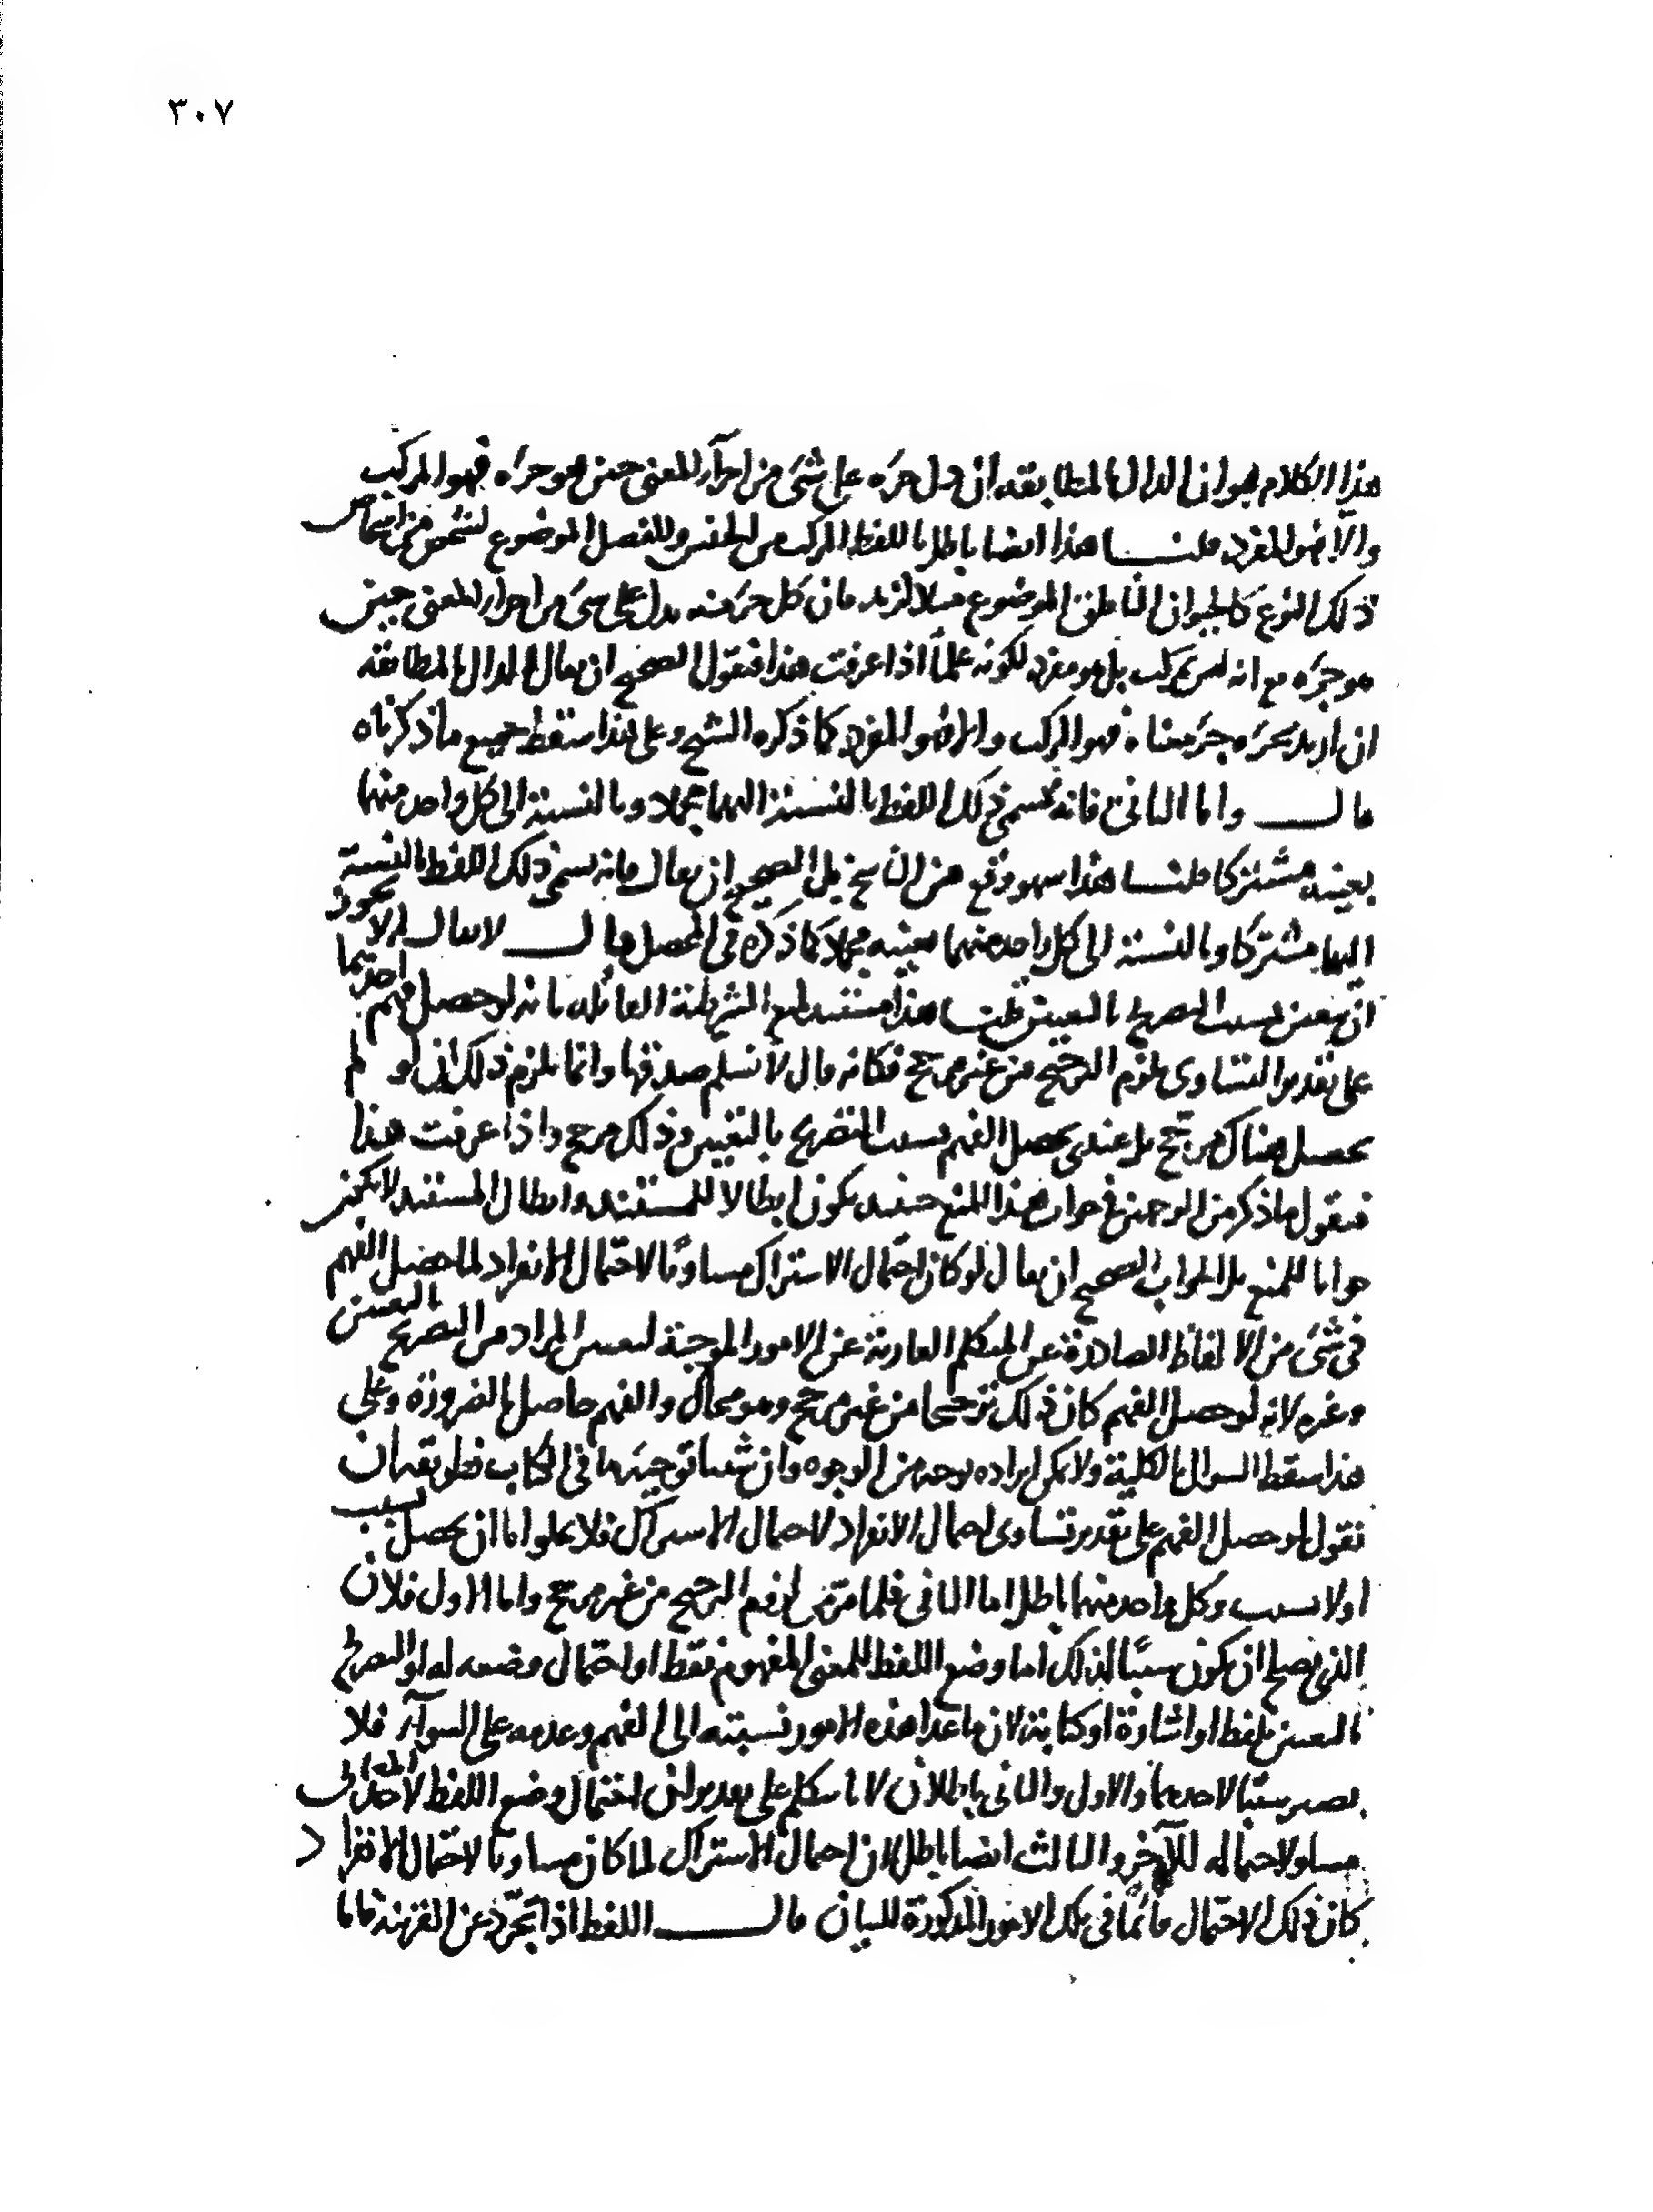 ٣٠٧
هذا الكلام هو ان الدال بالمطابقة ان دل جزءه على شئ من اجزاء المعنى حين هو جزءه فهو المركب
والا فهو المفرد قلنا هذا ايضا باطل باللفظ المركب من الجنس والفصل الموضوع لشخص من اشخاص
ذلك النوع كالحيوان الناطق الموضوع مثلا لزيد فان كل جزء منه يدل على شئ من اجزاء المعنى حين
هو جزءه مع انه ليس بمركب بل هو مفرد لكونه علماً اذا عرفت هذا فنقول الصحيح ان يقال الدال بالمطابقة
ان اريد بجزءه جزء معناه فهو المركب والا فهو المفرد كما ذكره الشيخ وعلى هذا سقط جميع ما ذكرناه
قال واما الثانى فانه يسمى ذلك اللفظ بالنسبة اليهما مجملا وبالنسبة الى كل واحد منهما
بعينه مشتركا قلنا هذا سهو وقع من الناسخ بل الصحيح ان يقال فانه يسمى ذلك اللفظ بالنسبة
اليهما مشتركا وبالنسبة الى كل واحد منهما بعينه مجملا كما ذكره فى المحصل قال لا يقال لم لا يجوز
ان يتعين بسبب التصريح بالتعيين قلنا هذا مستند لمنع الشرطية القائله بانه لو حصل فهم احدهما
على تقدير التساوى يلزم الترجيح من غير مرجح فكانه قال لا نسلم صدقها وانما يلزم ذلك ان لو لم
يحصل هناك مرجح بل عندى يحصل الفهم بسبب التصريح بالتعيين وذلك مرجح واذا عرفت هذا
فنقول ما ذكر من الوجهين فى جواب هذا المنع حينئذ يكون ابطالا للمستند وابطال المستند لا يكون
جوابا للمنع بل الجواب الصحيح ان يقال لو كان احتمال الاشتراك مساويًا لاحتمال الانفراد لما حصل الفهم
فى شئ من الالفاظ الصادرة عن المتكلم العارية عن الامور الموجبة لتعيين المراد من التصريح بالتعيين
وغيره لانه لو حصل الفهم كان ذلك ترجيحا من غير مرجح وهو محال والفهم حاصل بالضرورة وعلى
هذا سقط السوال بالكلية ولا يمكن ايراده بوجه من الوجوه وان شئنا توجيه ما فى الكتاب فطريقه ان
نقول لو حصل الفهم على تقدير تساوى احتمال الانفراد لاحتمال الاشتراك فلا يخلو اما ان يحصل بسبب
او لا بسبب وكل واحد منهما باطل اما الثانى فلما مر من لزوم الترجيح من غير مرجح واما الاول فلان
الذى يصلح ان يكون سببًا لذلك اما وضع اللفظ للمعنى المفهوم فقط او احتمال وضعه له او التصريح
بالتعيين بلفظ او اشارة او كتابة لان ما عدا هذه الامور نسبته الى الفهم وعدمه على السوآء فلا
يصير سببًا لاحدهما والاول والثانى باطلان لانا نتكلم على تقدير ان احتمال وضع اللفظ لاحد المعانى
مساو لاحتماله للآخر والثالث ايضا باطل لان احتمال الاشتراك لما كان مساويًا لاحتمال الانفراد
كان ذلك الاحتمال قائمًا فى تلك الامور المذكورة للبيان قال اللفظ اذا تجرّد عن القرينة فاما